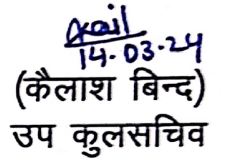 14.03.24
(कैलाश बिन्द)
उप कुलसचिव